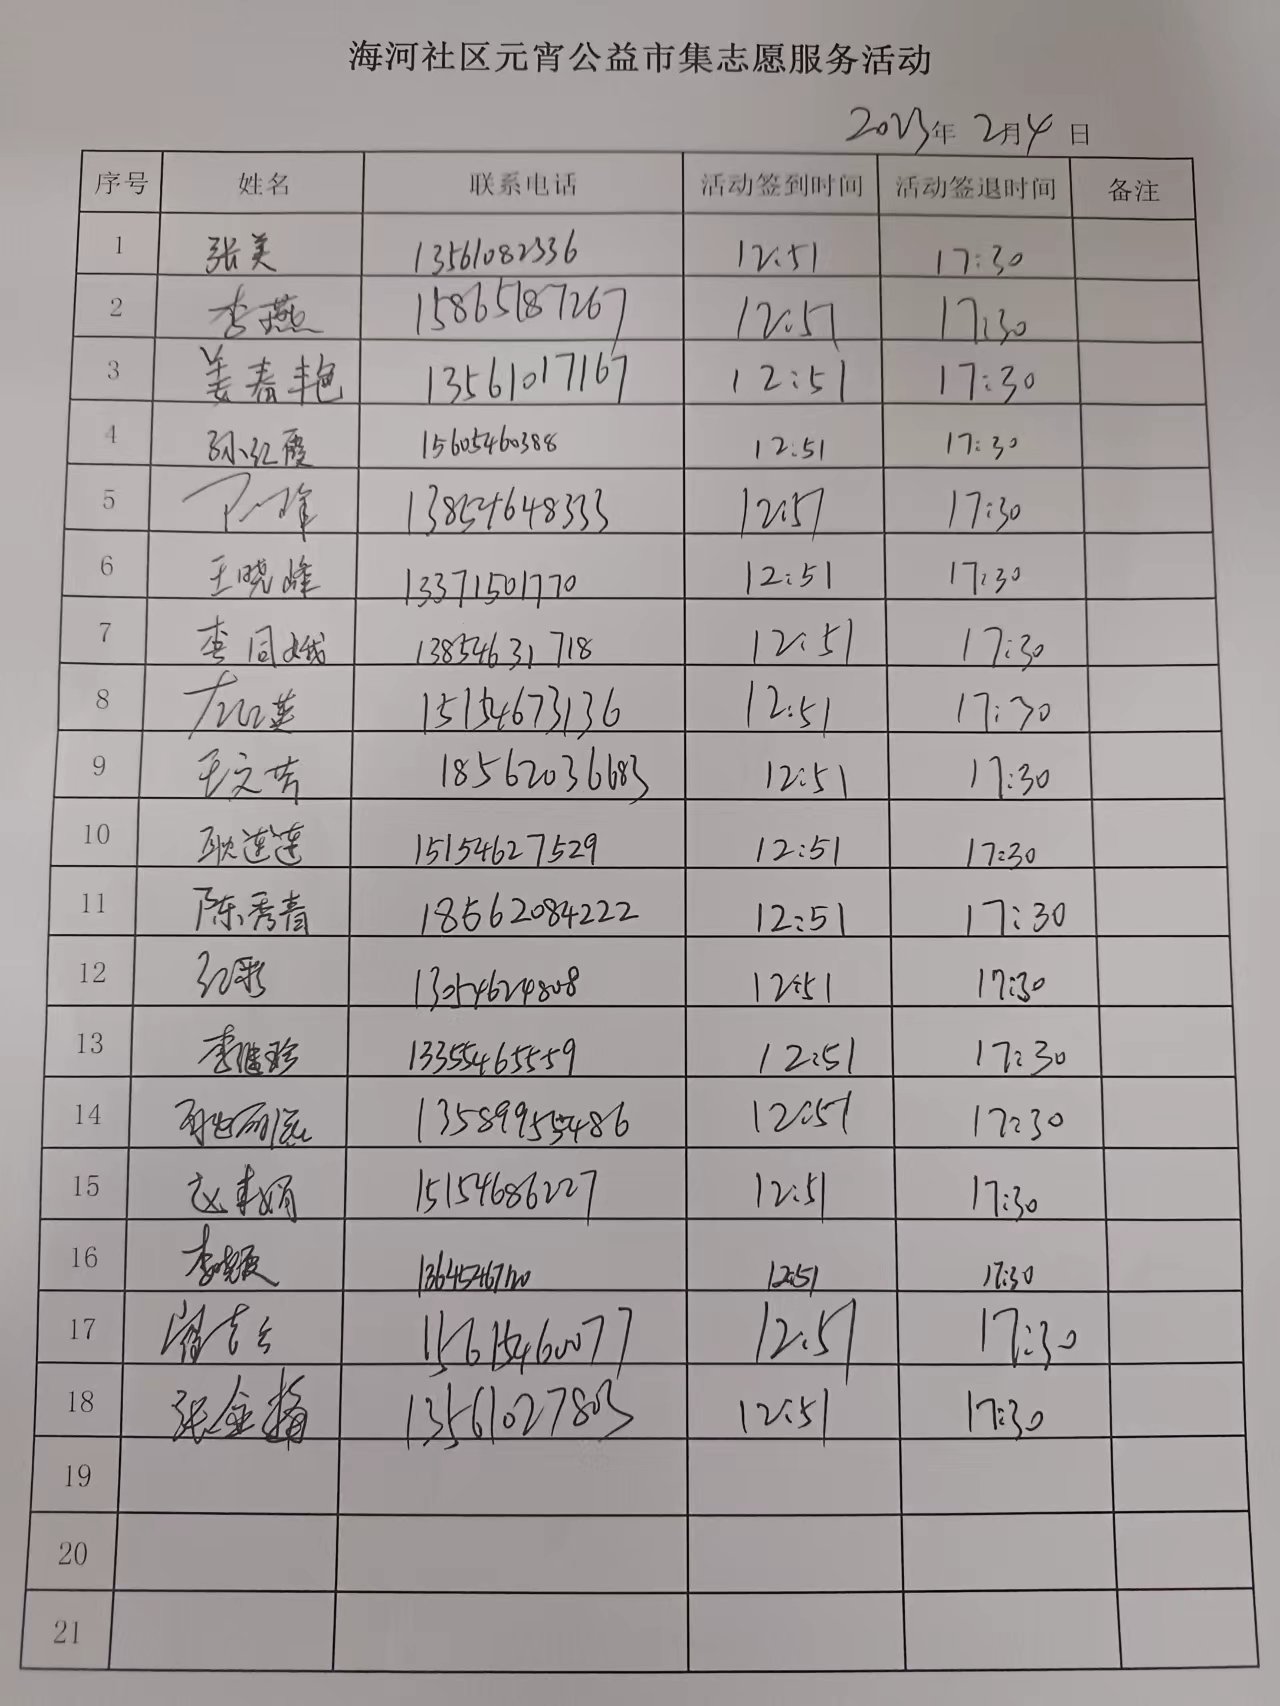 海河社区元宵公益市集志愿服务活动
2023年 2月4日
序号 姓名 联系电话 活动签到时间 活动签退时间 备注
1 张美 13561082336 12:51 17:30
2 李燕 15865187267 12:51 17:30
3 姜春艳 13561017167 12:51 17:30
4 孙红霞 15605460388 12:51 17:30
5 13854648333 12:51 17:30
6 王晓峰 13371501770 12:51 17:30
7 李同娥 13854631718 12:51 17:30
8 左红莲 15154673136 12:51 17:30
9 王文芳 18562036683 12:51 17:30
10 耿莲莲 15154627529 12:51 17:30
11 陈秀青 18562084222 12:51 17:30
12 13054624808 12:51 17:30
13 李继珍 13355465559 12:51 17:30
14 13589955486 12:51 17:30
15 15154686227 12:51 17:30
16 李晓霞 12:51 17:30
17 15615460077 12:51 17:30
18 张金梅 13561027803 12:51 17:30
19
20
21